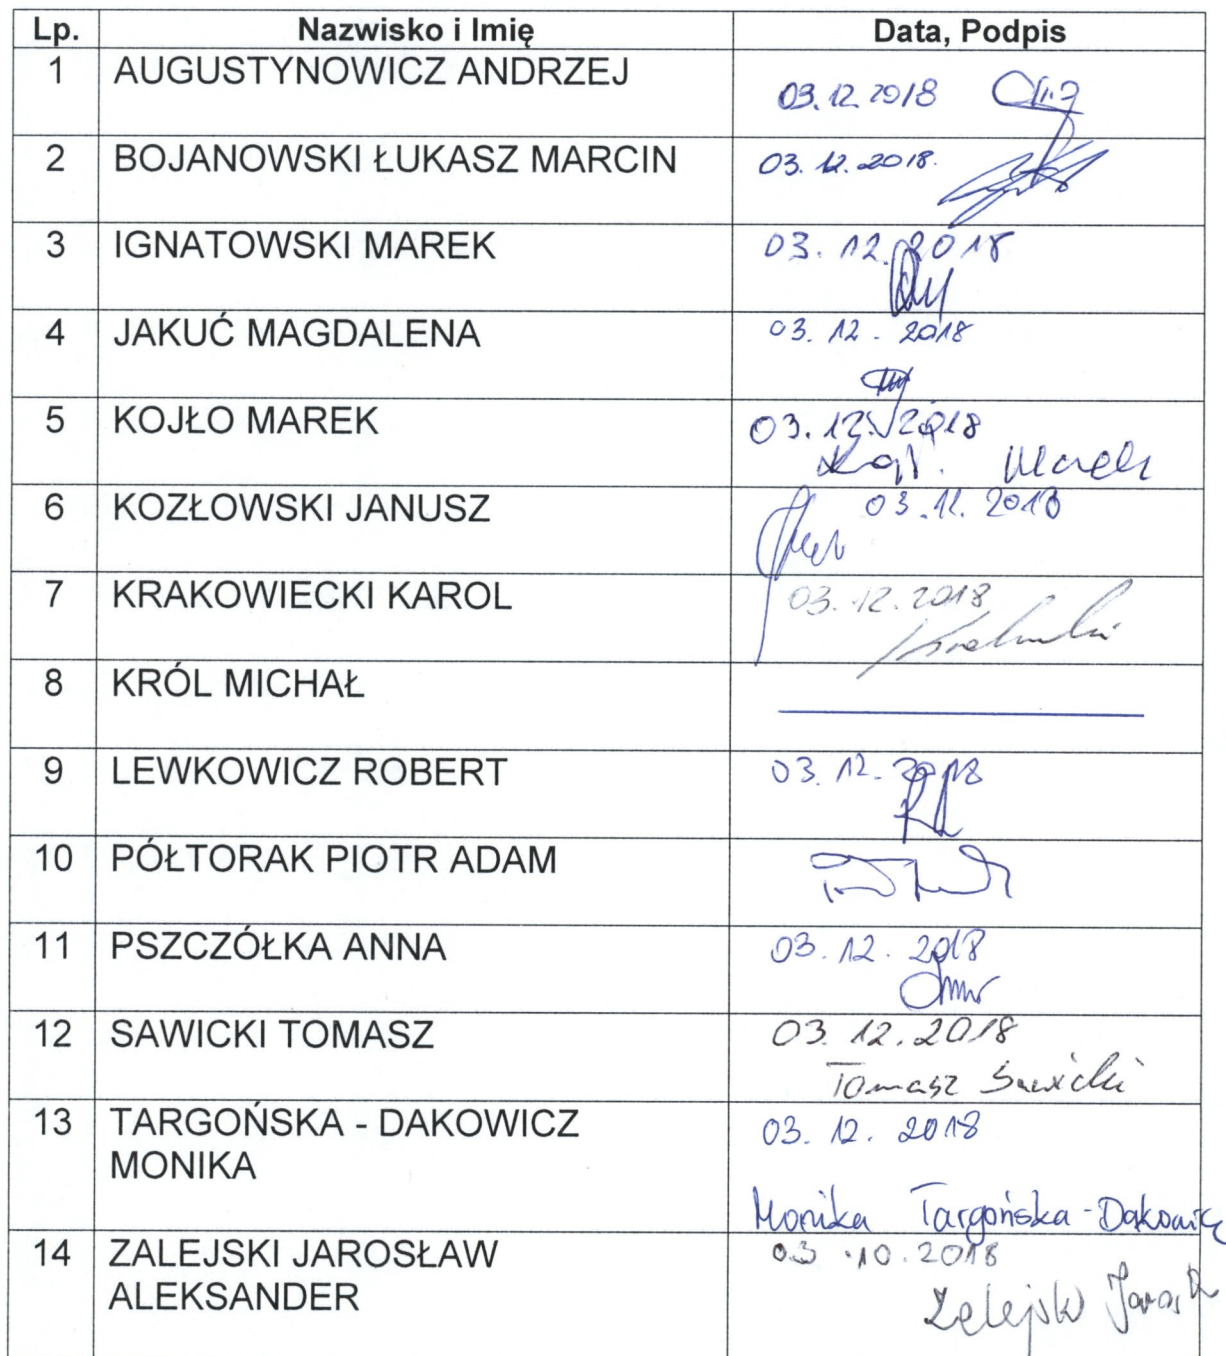 Lp. Nazwisko i Imię Data, Podpis
1 AUGUSTYNOWICZ ANDRZEJ 03.12.2018
2 BOJANOWSKI ŁUKASZ MARCIN 03.12.2018.
3 IGNATOWSKI MAREK 03.12.2018
4 JAKUĆ MAGDALENA 03.12.2018
5 KOJŁO MAREK 03.12.2018
Marek
6 KOZŁOWSKI JANUSZ 2018
7 KRAKOWIECKI KAROL 03.12.2018
8 KRÓL MICHAŁ
9 LEWKOWICZ ROBERT 03.12.2018
10 PÓŁTORAK PIOTR ADAM
11 PSZCZÓŁKA ANNA 03.12.2018
12 SAWICKI TOMASZ 03.12.2018
Tomasz Sawicki
13 TARGOŃSKA - DAKOWICZ 03.12.2018
MONIKA
Monika Targońska-Dakowicz
14 ZALEJSKI JAROSŁAW 03.10.2018
ALEKSANDER